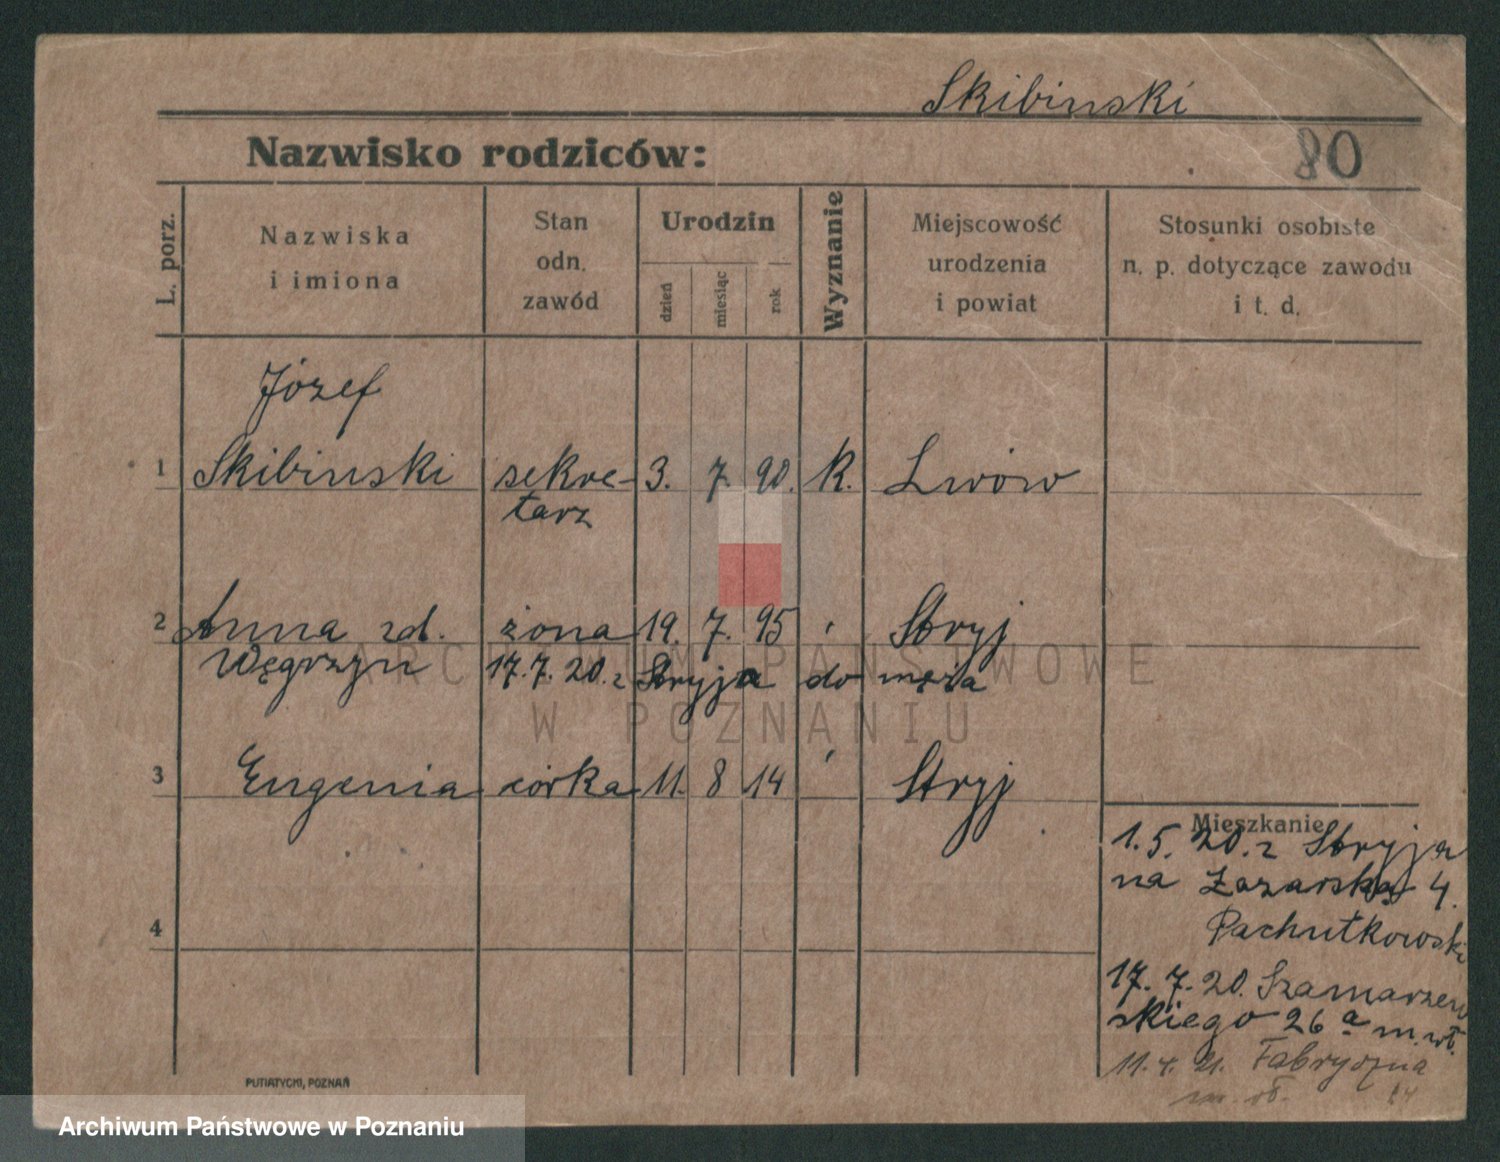 Skibinski
Nazwisko rodziców:
80
L. porz.
Nazwiska
i imiona
Stan
odn.
zawód
Urodzin
dzień
miesiąc
rok
Wyznanie
Miejscowość
urodzenia
i powiat
Stosunki osobiste
n. p. dotyczące zawodu
i t. d.
Józef
1 Skibinski sekre- 3. 7. 90. k. Lwów
tarz
2 Anna zd. żona 19. 7. 95 ' Stryj
Węgrzyn 17.7.20. z Stryja do męża
3 Eugenia córka 11. 8 14 ' Stryj
4
Mieszkanie
1. 5. 20. z Stryja
na Łazarska 4.
Pachutkowski
17. 7. 20. Szamarzew
skiego 26 a m. wł.
11. 4. 21. Fabryczna
m. wł. 14
PUTIATYCKI, POZNAŃ
ARCHIWUM PAŃSTWOWE
W POZNANIU
Archiwum Państwowe w Poznaniu